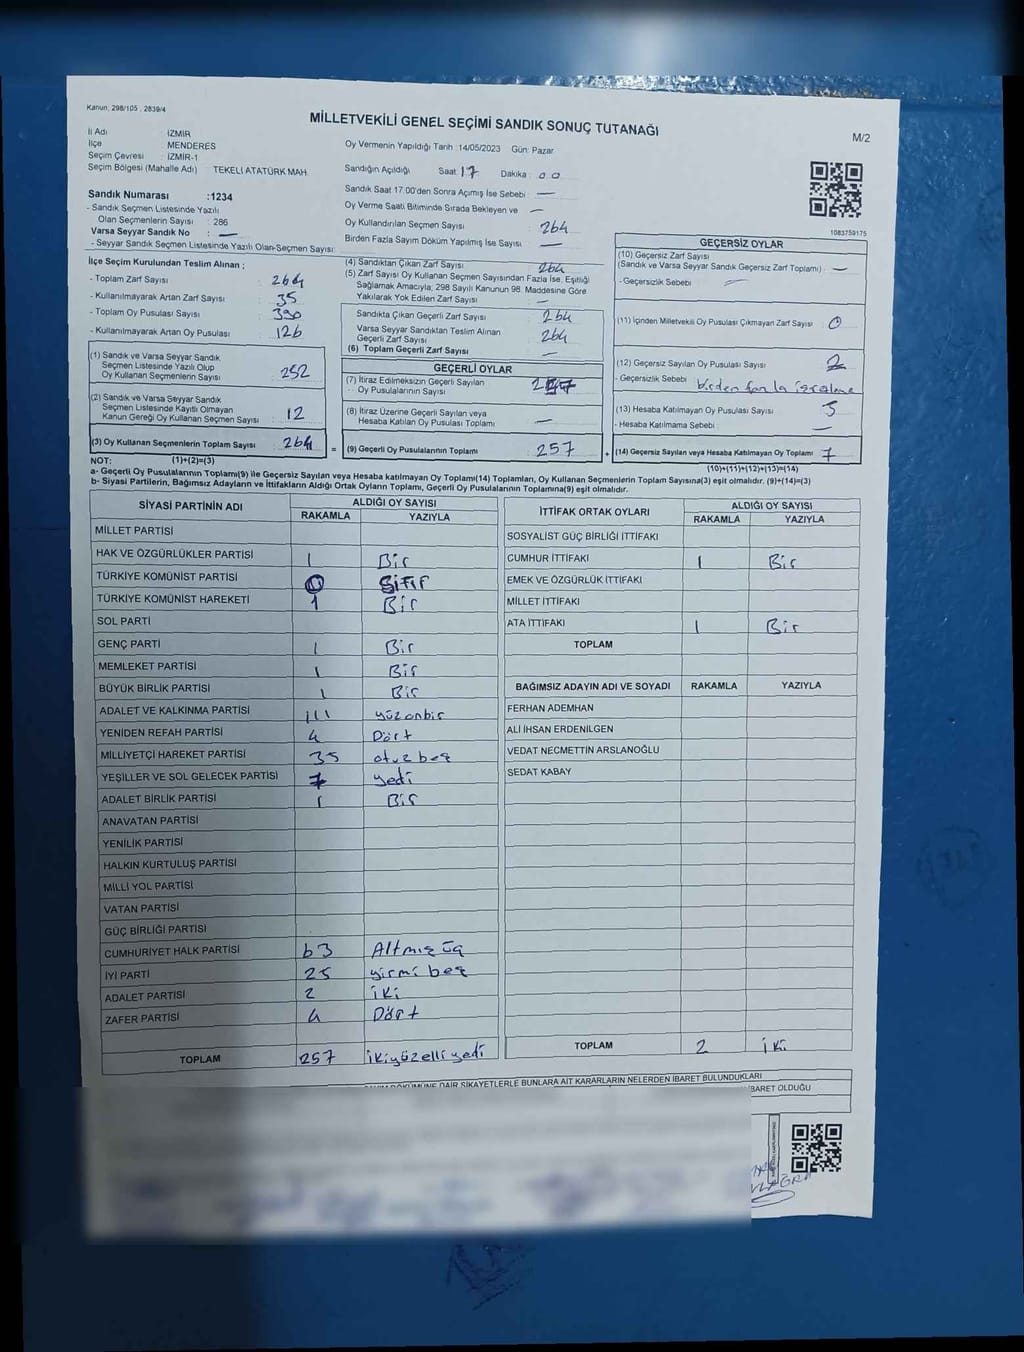 Kanun: 298/105 , 2839/4
MİLLETVEKİLİ GENEL SEÇİMİ SANDIK SONUÇ TUTANAĞI
M/2
İl Adı : İZMİR
İlçe : MENDERES
Seçim Çevresi : İZMİR-1
Seçim Bölgesi (Mahalle Adı) TEKELİ ATATÜRK MAH.
Oy Vermenin Yapıldığı Tarih :14/05/2023 Gün: Pazar
Sandığın Açıldığı Saat: 17 Dakika : 00
Sandık Saat 17.00'den Sonra Açımış İse Sebebi : —
Oy Verme Saati Bitiminde Sırada Bekleyen ve —
Oy Kullandırılan Seçmen Sayısı : 264
Birden Fazla Sayım Döküm Yapılmış İse Sayısı : —
Sandık Numarası :1234
- Sandık Seçmen Listesinde Yazılı
Olan Seçmenlerin Sayısı : 286
Varsa Seyyar Sandık No : —
- Seyyar Sandık Seçmen Listesinde Yazılı Olan Seçmen Sayısı:
1083759175
İlçe Seçim Kurulundan Teslim Alınan ;
- Toplam Zarf Sayısı : 264
- Kullanılmayarak Artan Zarf Sayısı : 35
- Toplam Oy Pusulası Sayısı : 390
- Kullanılmayarak Artan Oy Pusulası : 126
(1) Sandık ve Varsa Seyyar Sandık
Seçmen Listesinde Yazılı Olup
Oy Kullanan Seçmenlerin Sayısı : 252
(2) Sandık ve Varsa Seyyar Sandık
Seçmen Listesinde Kayıtlı Olmayan
Kanun Gereği Oy Kullanan Seçmen Sayısı : 12
(3) Oy Kullanan Seçmenlerin Toplam Sayısı : 264
(4) Sandıktan Çıkan Zarf Sayısı : 264
(5) Zarf Sayısı Oy Kullanan Seçmen Sayısından Fazla İse, Eşitliği
Sağlamak Amacıyla; 298 Sayılı Kanunun 98. Maddesine Göre
Yakılarak Yok Edilen Zarf Sayısı : —
Sandıkta Çıkan Geçerli Zarf Sayısı : 264
Varsa Seyyar Sandıktan Teslim Alınan
Geçerli Zarf Sayısı : 264
(6) Toplam Geçerli Zarf Sayısı : —
GEÇERLİ OYLAR
(7) İtiraz Edilmeksizin Geçerli Sayılan
Oy Pusulalarının Sayısı :
(8) İtiraz Üzerine Geçerli Sayılan veya
Hesaba Katılan Oy Pusulası Toplamı : —
= (9) Geçerli Oy Pusulalarının Toplamı : 257
GEÇERSİZ OYLAR
(10) Geçersiz Zarf Sayısı
(Sandık ve Varsa Seyyar Sandık Geçersiz Zarf Toplamı) : —
- Geçersizlik Sebebi : —
(11) İçinden Milletvekili Oy Pusulası Çıkmayan Zarf Sayısı : 0
(12) Geçersiz Sayılan Oy Pusulası Sayısı : 2
- Geçersizlik Sebebi : birden fazla işretleme
(13) Hesaba Katılmayan Oy Pusulası Sayısı : 5
- Hesaba Katılmama Sebebi : —
+ (14) Geçersiz Sayılan veya Hesaba Katılmayan Oy Toplamı : 7
NOT: (1)+(2)=(3)
(10)+(11)+(12)+(13)=(14)
a- Geçerli Oy Pusulalarının Toplamı(9) ile Geçersiz Sayılan veya Hesaba katılmayan Oy Toplamı(14) Toplamları, Oy Kullanan Seçmenlerin Toplam Sayısına(3) eşit olmalıdır. (9)+(14)=(3)
b- Siyasi Partilerin, Bağımsız Adayların ve İttifakların Aldığı Ortak Oyların Toplamı, Geçerli Oy Pusulalarının Toplamına(9) eşit olmalıdır.
SİYASİ PARTİNİN ADI ALDIĞI OY SAYISI
RAKAMLA YAZIYLA
MİLLET PARTİSİ
HAK VE ÖZGÜRLÜKLER PARTİSİ 1 Bir
TÜRKİYE KOMÜNİST PARTİSİ 0 Sıfır
TÜRKİYE KOMÜNİST HAREKETİ 1 Bir
SOL PARTİ
GENÇ PARTİ 1 Bir
MEMLEKET PARTİSİ 1 Bir
BÜYÜK BİRLİK PARTİSİ 1 Bir
ADALET VE KALKINMA PARTİSİ 111 yüzonbir
YENİDEN REFAH PARTİSİ 4 Dört
MİLLİYETÇİ HAREKET PARTİSİ 35 otuzbeş
YEŞİLLER VE SOL GELECEK PARTİSİ 7 yedi
ADALET BİRLİK PARTİSİ 1 Bir
ANAVATAN PARTİSİ
YENİLİK PARTİSİ
HALKIN KURTULUŞ PARTİSİ
MİLLİ YOL PARTİSİ
VATAN PARTİSİ
GÜÇ BİRLİĞİ PARTİSİ
CUMHURİYET HALK PARTİSİ 63 Altmış üç
İYİ PARTİ 25 yirmi beş
ADALET PARTİSİ 2 İki
ZAFER PARTİSİ 4 Dört
TOPLAM 257 İkiyüzelliyedi
İTTİFAK ORTAK OYLARI ALDIĞI OY SAYISI
RAKAMLA YAZIYLA
SOSYALİST GÜÇ BİRLİĞİ İTTİFAKI
CUMHUR İTTİFAKI 1 Bir
EMEK VE ÖZGÜRLÜK İTTİFAKI
MİLLET İTTİFAKI
ATA İTTİFAKI 1 Bir
TOPLAM
BAĞIMSIZ ADAYIN ADI VE SOYADI RAKAMLA YAZIYLA
FERHAN ADEMHAN
ALİ İHSAN ERDENİLGEN
VEDAT NECMETTİN ARSLANOĞLU
SEDAT KABAY
TOPLAM 2 İki
DÖKÜMÜNE DAİR ŞİKAYETLERLE BUNLARA AİT KARARLARIN NELERDEN İBARET BULUNDUKLARI
İBARET OLDUĞU